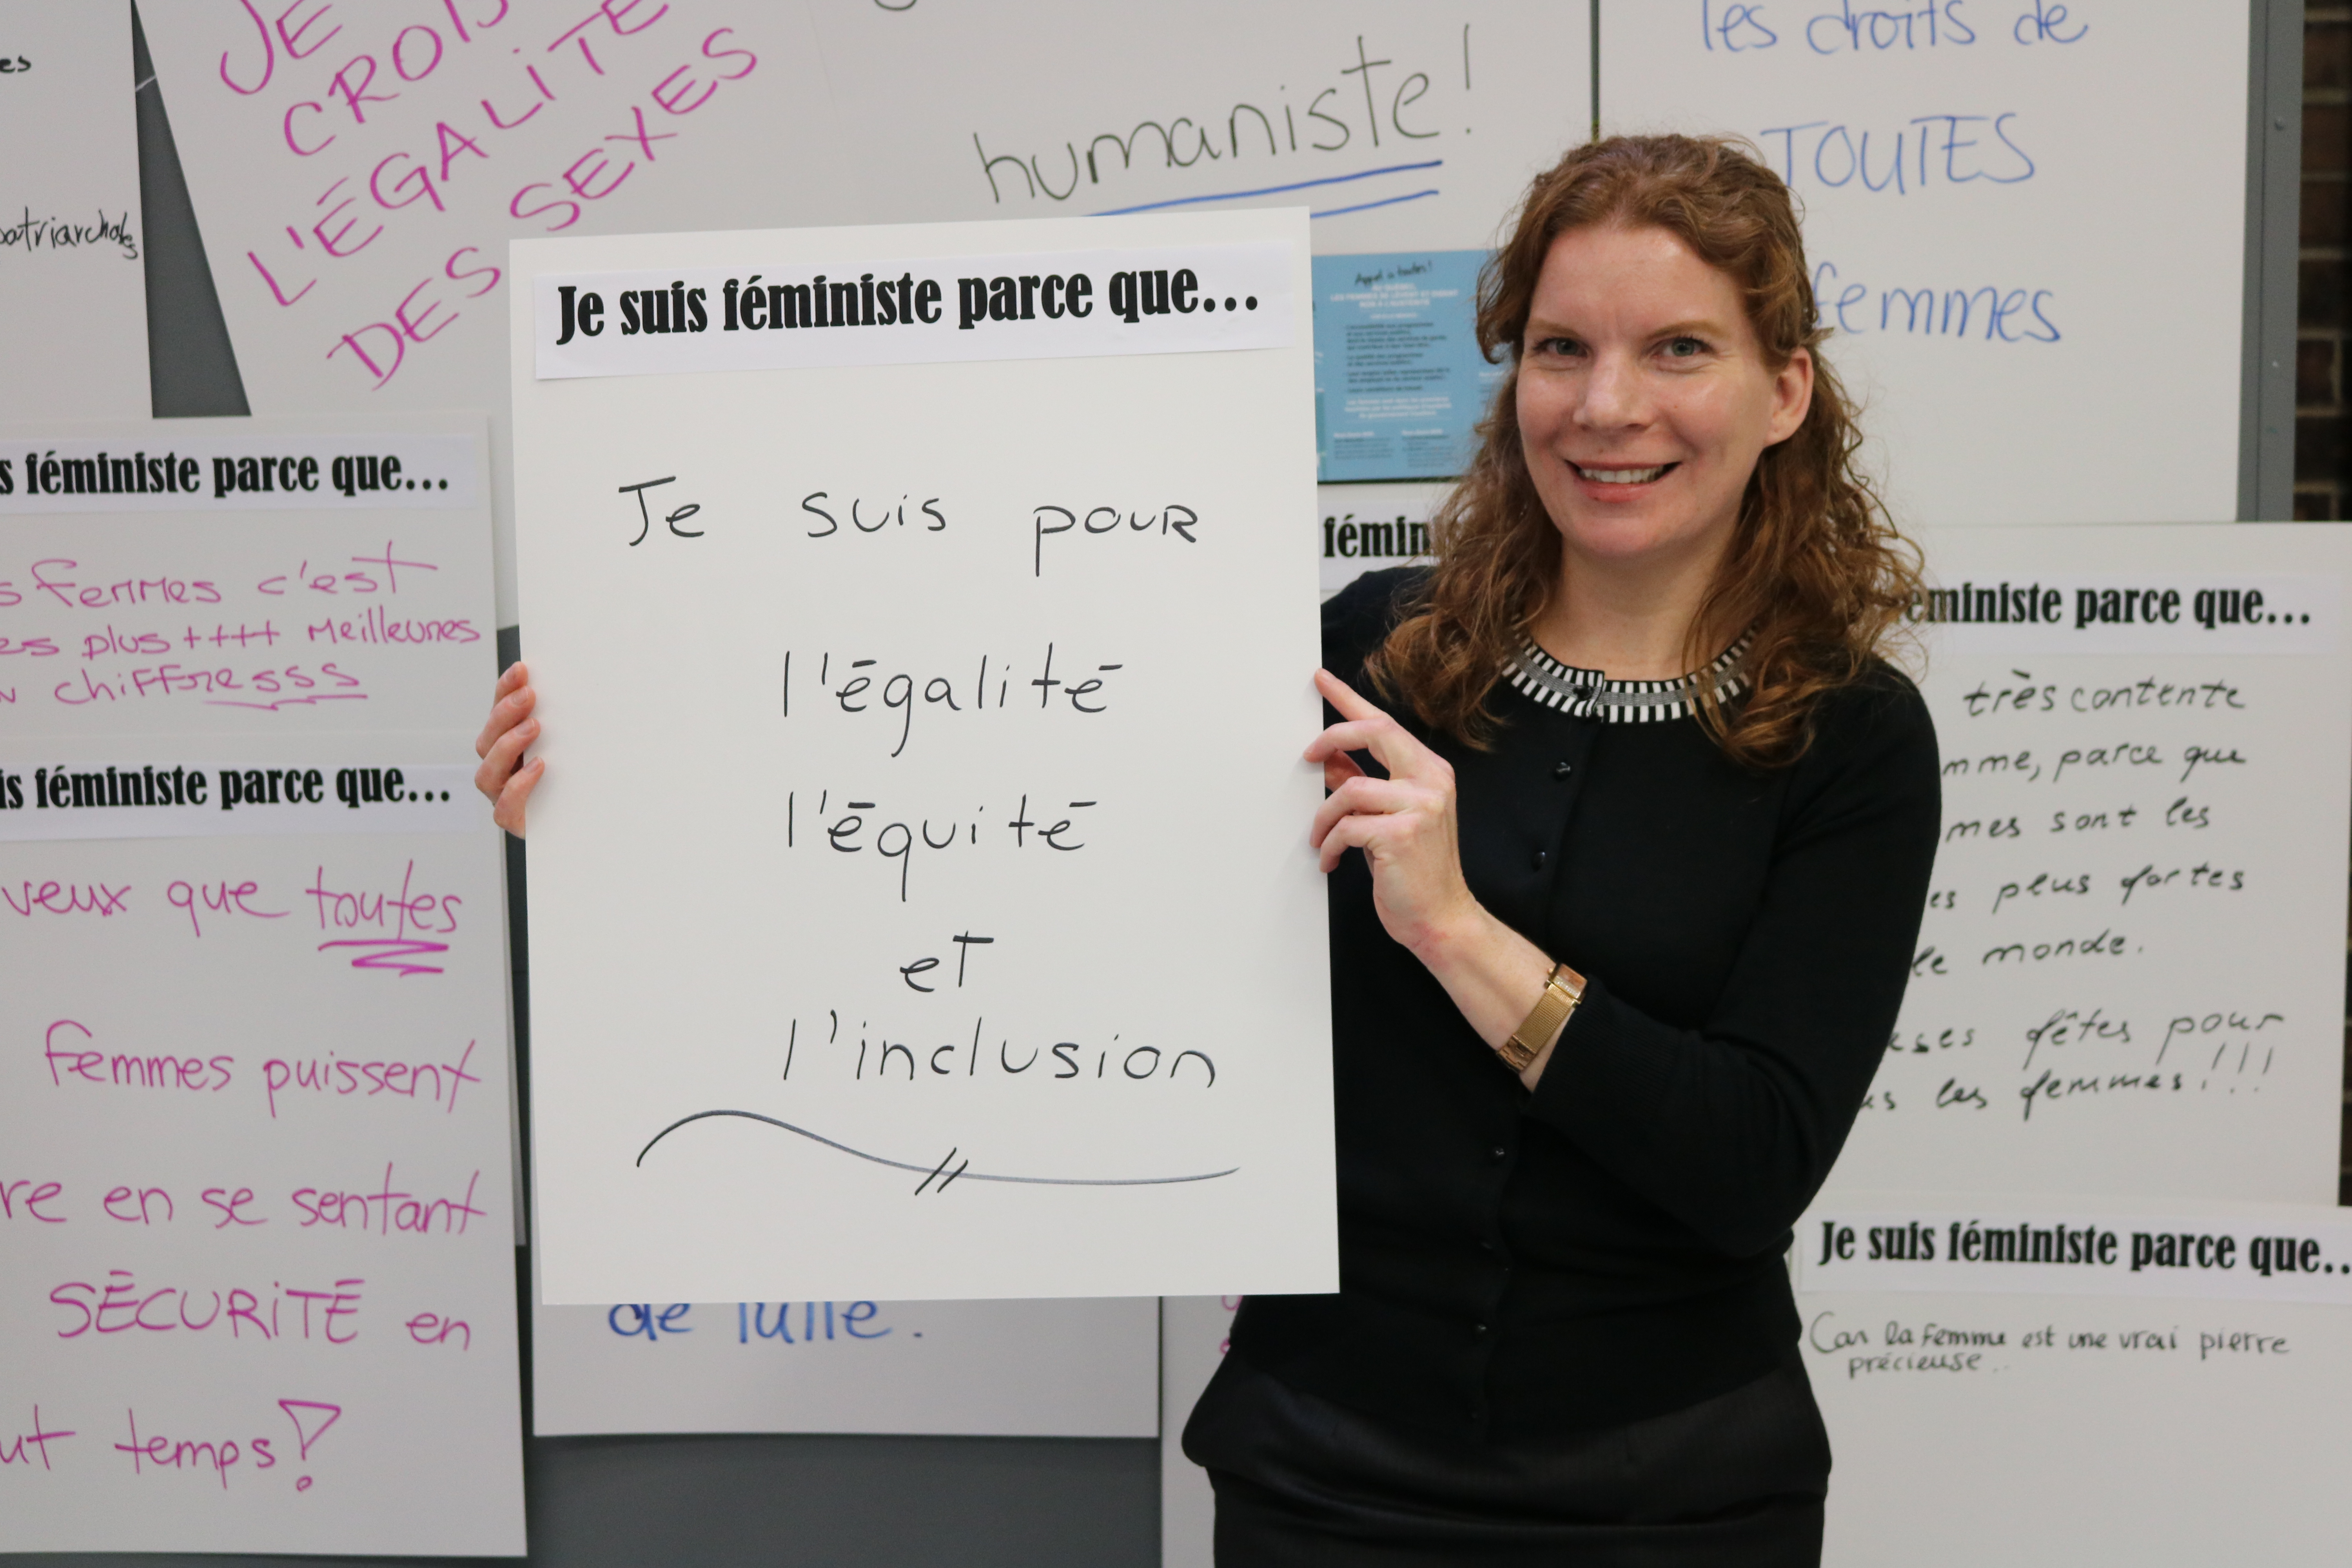 es
patriarchales
JE
CROIS
L'ÉGALITÉ
DES SEXES
humaniste!
les droits de
TOUTES
femmes
Appel à toutes!
Je suis féministe parce que...
Je suis pour
l'égalité
l'équité
et
l'inclusion
s féministe parce que...
s femmes c'est
es plus ++++ meilleures
chiffresss
is féministe parce que...
veux que toutes
femmes puissent
re en se sentant
SÉCURITÉ en
ut temps!
de lutte.
fémin
éministe parce que...
très contente
mme, parce que
mes sont les
es plus fortes
le monde.
ses fêtes pour
us les femmes!!!
Je suis féministe parce que..
Car la Femme est une vrai pierre
précieuse..